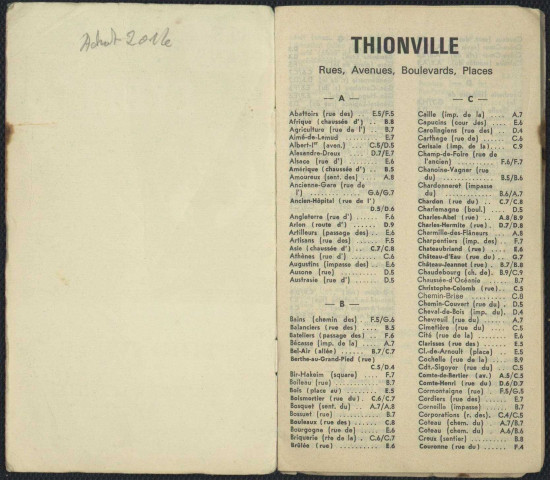 Achat 2012
THIONVILLE
Rues, Avenues, Boulevards, Places
— A —
Abattoirs (rue des) . E.5/F.5
Afrique (chaussée d') .. B.8
Agriculture (rue de l') . B.7
Aimé-de-Lemud .... E.7
Albert-Ier (aven.) ... C.5/D.5
Alexandre-Dreux ... D.7/E.7
Alsace (rue d') ..... E.6
Amérique (chaussée d') .. B.5
Amoureux (sent. des) .. A.8
Ancienne-Gare (rue de
l') ........ G.6/G.7
Ancien-Hôpital (rue de l')
D.5/D.6
Angleterre (rue d') .... F.6
Arlon (route d') ..... D.9
Artilleurs (passage des) . E.6
Artisans (rue des) .... F.5
Asie (chaussée d') .. C.7/C.8
Athènes (rue d') .... C.6
Augustins (impasse des) . E.6
Ausone (rue) ...... D.5
Austrasie (rue d') .... D.5
— B —
Bains (chemin des) . F.5/G.6
Balanciers (rue des) ... B.5
Bateliers (passage des) . F.6
Bécasse (imp. de la) ... A.7
Bel-Air (allée) ..... B.7/C.7
Berthe-au-Grand-Pied (rue)
C.5/D.4
Bir-Hakeim (square) ... F.7
Boileau (rue) ....... B.7
Bois (place au) ..... E.5
Boismortier (rue du) . C.6/C.7
Bosquet (sent. du) .. A.7/A.8
Bossuet (rue) ....... B.7
Bouleaux (rue des) ... C.8
Bourgogne (rue de) ... E.6
Briquerie (rte de la) . C.6/C.7
Brûlée (rue) ....... E.6
— C —
Caille (imp. de la) .... A.7
Capucins (cour des) ... E.6
Carolingiens (rue des) .. D.4
Carthage (rue de) .... C.6
Cerisaie (imp. de la) ... C.9
Champ-de-Foire (rue de
l'ancien) ....... F.6/F.7
Chanoine-Vagner (rue
du) ........ B.5/B.6
Chardonneret (impasse
du) ........ B.6/A.7
Chardon (rue du) .. C.7/C.8
Charlemagne (boul.) ... D.5
Charles-Abel (rue) .. A.8/B.9
Charles-Hermite (rue). D.7/D.8
Charmille-des-Flâneurs .. A.8
Charpentiers (imp. des) . F.7
Chateaubriand (rue) ... E.6
Château-d'Eau (rue du) . G.7
Château-Jeannot (rue) . B.7/B.8
Chaudebourg (ch. de). B.9/C.9
Chaussée-d'Océanie ... B.7
Christophe-Colomb (rue) .. C.5
Chemin-Brise ...... C.8
Chemin-Couvert (rue du) . D.5
Cheval-de-Bois (imp. du). D.4
Chevreuil (rue du) .... A.7
Cimetière (rue du) ... C.5
Cité (rue de la) ..... E.6
Clarisses (rue des) ... E.5
Cl.-de-Arnoult (place) . E.5
Cochella (rue de la) ... B.9
Cdt.-Sigoyer (rue du) .. C.5
Comte-de-Bertier (av.) . A.5/C.5
Comte-Henri (rue du) . D.6/D.7
Cormontaigne (rue) .. F.5/G.5
Cordiers (rue des) .... E.7
Corneille (impasse) ... B.7
Corporations (r. des). C.4/C.5
Coteau (chem. du) .. A.7/B.7
Coteau (chem. du) . A.6/B.6
Creux (sentier) ...... B.8
Couronne (rue du) ... F.4